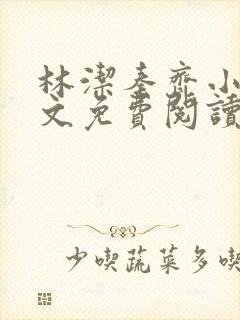 林潔秦齊小
文免費閱讀
少喫蔬菜多喫